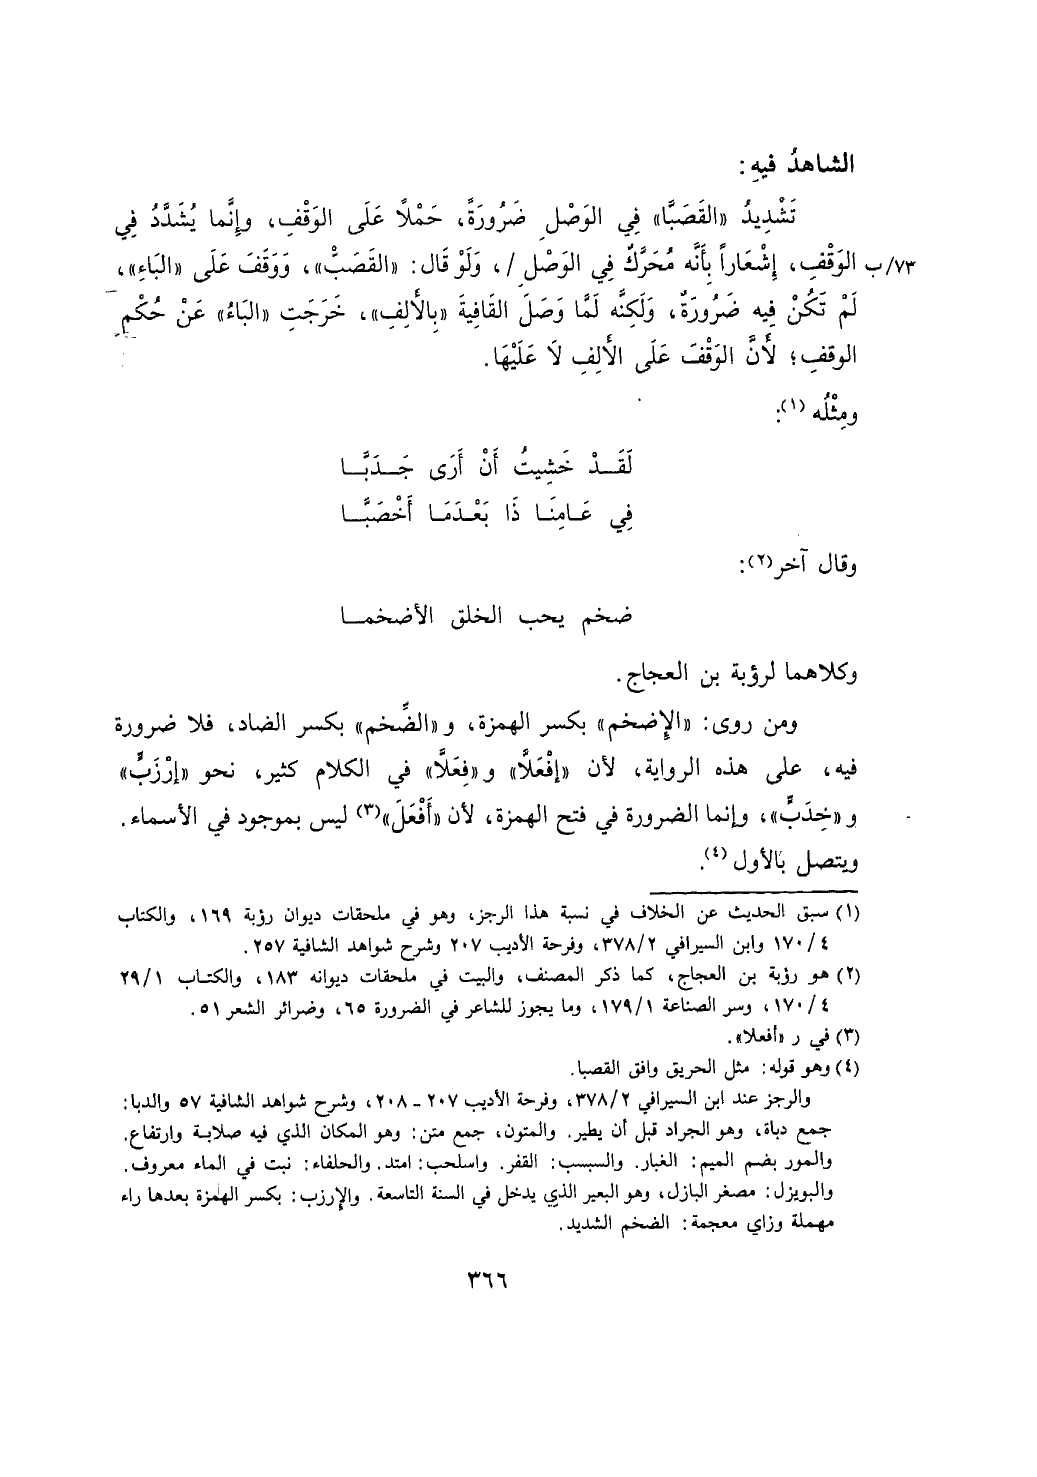 الشاهدُ فيهِ:
تَشْدِيدُ «القَصَبَّا» فِي الوَصْلِ ضَرُورَةً، حَمْلًا عَلَى الوَقْفِ، وإنَّما يُشَدَّدُ فِي
٧٣/ب الوَقْفِ، إشْعَاراً بِأَنَّه مُحَرَّكٌ فِي الوَصْلِ /، وَلَوْ قَال: «القَصَبّْ»، وَوَقَفَ عَلَى «البَاءِ»،
لَمْ تَكُنْ فِيه ضَرُورَةٌ، وَلَكِنَّه لَمَّا وَصَلَ القَافِيةَ «بِالأَلِفِ»، خَرَجَتِ «البَاءُ» عَنْ حُكْمِ
الوقفِ؛ لأَنَّ الوَقْفَ عَلَى الأَلِفِ لَا عَلَيْهَا.
ومِثْلُه (١):
لَقَــدْ خَشِيتُ أَنْ أَرَى جَــدَبَّــا
فِي عَـامِنَـا ذَا بَعْـدَمَـا أَخْصَبَّــا
وقال آخر(٢):
ضخم يحب الخلق الأضخمــا
وكلاهما لرؤبة بن العجاج.
ومن روى: «الإضخم» بكسر الهمزة، و«الضِّخم» بكسر الضاد، فلا ضرورة
فيه، على هذه الرواية، لأن «إفْعَلَّا» و«فِعَلَّا» في الكلام كثير، نحو «إرْزَبٍّ»
و«خِدَبٍّ»، وإنما الضرورة في فتح الهمزة، لأن «أَفْعَلَ»(٣) ليس بموجود في الأسماء.
ويتصل بالأول (٤).
(١) سبق الحديث عن الخلاف في نسبة هذا الرجز، وهو في ملحقات ديوان رؤبة ١٦٩، والكتاب
٤/ ١٧٠ وابن السيرافي ٣٧٨/٢، وفرحة الأديب ٢٠٧ وشرح شواهد الشافية ٢٥٧.
(٢) هو رؤبة بن العجاج، كما ذكر المصنف، والبيت في ملحقات ديوانه ١٨٣، والكتـاب ٢٩/١
٤/ ١٧٠، وسر الصناعة ١٧٩/١، وما يجوز للشاعر في الضرورة ٦٥، وضرائر الشعر ٥١.
(٣) في ر «أفعلا».
(٤) وهو قوله: مثل الحريق وافق القصبا.
والرجز عند ابن السيرافي ٣٧٨/٢، وفرحة الأديب ٢٠٧ ـ ٢٠٨، وشرح شواهد الشافية ٥٧ والدبا:
جمع دباة، وهو الجراد قبل أن يطير. والمتون، جمع متن: وهو المكان الذي فيه صلابة وارتفاع.
والمور بضم الميم: الغبار. والسبسب: القفر. واسلحب: امتد. والحلفاء: نبت في الماء معروف.
والبويزل: مصغر البازل، وهو البعير الذي يدخل في السنة التاسعة. والإرزب: بكسر الهمزة بعدها راء
مهملة وزاي معجمة: الضخم الشديد.
٣٦٦